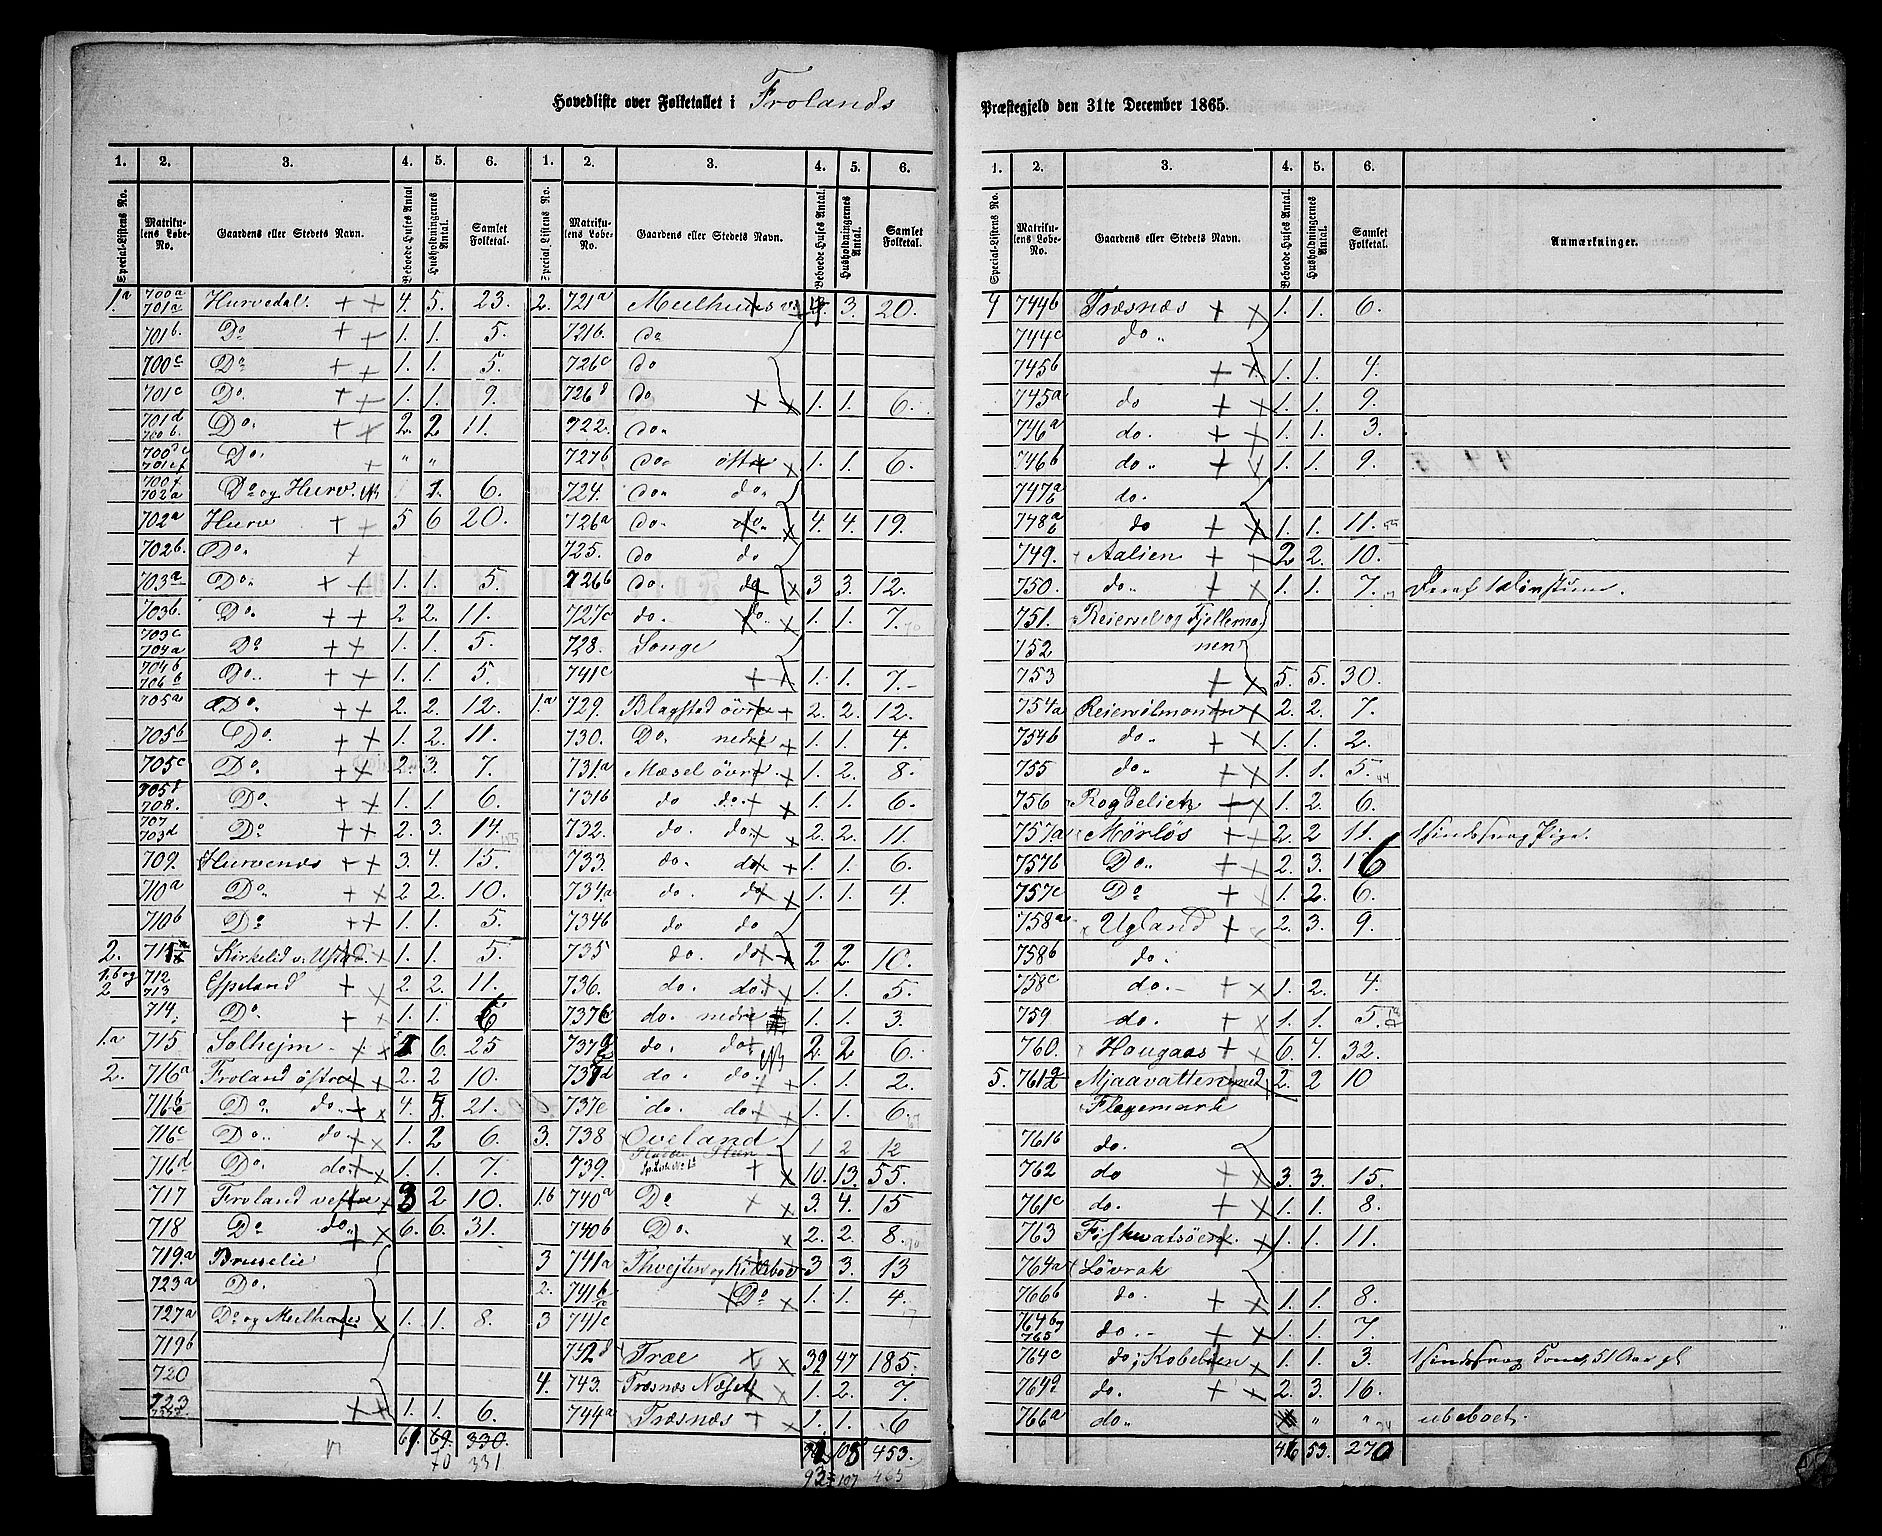 Hovedliste over Folketallet i Frolands
Præstegjeld den 31te December 1865.
1. 2. 3. 4. 5. 6. 1. 2. 3. 4. 5. 6.
Special-Listens No. Matrikulens Løbe-No. Gaardens eller Stedets Navn. Beboede Huses Antal Husholdningernes Antal. Samlet Folketal. Special-Listens No. Matrikulens Løbe-No. Gaardens eller Stedets Navn. Beboede Huses Antal. Husholdningernes Antal. Samlet Folketal.
1.a 700a 701a Hurvedal. 4. 5. 23. 2. 721a 3. 20.
701b. Do 1. 1. 5. 721b. do
700c Do 1. 1. 5. 726c do
701c Do. 1. 1. 9. 726d do 1. 1. 6.
701d 700b. Do. 2. 2 11. 722. do.
Do. " " 727b do. 1. 1. 6.
700f 702a Do og Hurv. 1. 6. 724. do. do.
702a Hurv 5 6 20. 726a do. do. 4. 4. 19.
702b. Do. 725. do do
703a Do. 1. 1. 5. 726b do. do 3 3. 12.
703b. Do. 2 2. 11. 727c do. do. 1. 1. 7.
703c 704a Do 1. 1. 5. 728. Songe
704b 706b Do. 1. 1. 5. 741c 1. 1. 7.
705a Do. 2. 2. 12. 1.a 729. Blagstad övre 2. 2. 12.
705b Do. 1. 2. 11. 730. Do. nedre 1. 1. 4.
705c Do. 2. 3. 7. 731a Mæsel övre 1. 2. 8.
705d 708. Do. 1. 1. 6. 731b do do. 1. 1. 6.
707 703d Do. 2. 3. 14. 732. do. do. 2. 2. 11.
709. Hurvenæs 3. 4. 15. 733. do. do 1. 1. 6.
710a Do. 2 2. 10. 734a do. do 1. 1. 4.
710b Do 1. 1. 5. 734b do do
2. 711 Kirkelid v. Ufstad. 1. 1. 5. 735 do. do 2 2. 10.
1.b og 2 712 713 Espeland 2 2. 11. 736. do. do. 1. 1. 5.
714. Do. 1. 1. 6 do. nedre 1. 1. 3.
1.a 715 Solhejm 6. 25 do. do. 2. 2 6.
2. 716a Froland östre 2. 2 10. 737d do. do. 1. 1. 2.
Do. do. 4. 21. 737e do. do. 1. 1. 6
716c Do. do. 1. 2 6. 3. 738 Oveland 1 2 12
716d Do. do. 1. 1. 7. 739. 10. 13. 55.
717 Froland vestre 3 2 10. 1.b 740a Do 3. 4. 15
718 Do do. 6. 6. 31. 740b Do. 2. 2. 8.
719a Bruselie 3 741a 3 3. 13
723a Do. 2. 741b Do 1. 1. 4.
727a Do og Meelhuus 1. 1. 8. 3 741c
719b 742d Træ 39 47 185.
720 4. 743. Træsnæs Næset 1. 2. 7.
723 1. 1. 6. 744a Træsnæs 1. 1. 6
61 69. 330. 108 453.
70 331 93 107 465
1. 2. 3. 4. 5. 6.
Special-Listens No. Matrikulens Løbe-No. Gaardens eller Stedets Navn. Beboede Huses Antal. Husholdningernes Antal. Samlet Folketal. Anmærkninger.
4 744b Træsnæs 1. 1. 6.
744c do.
745b 1. 1. 4.
745a do 1. 1. 9.
746a do. 1. 1. 3.
746b do. 1. 1. 9.
747a b do.
748a b do 1. 1. 11.
749. Aalien 2 2. 10.
750. do. 1. 1. 7.
751. Reiersel og Fjellemo
752 nen
753 5. 5. 30.
754a Reierselmonen 2. 2. 7.
754b do. 1. 1. 2.
755 do. 1. 1. 5.
756 1. 2. 6.
757a Mørløs 2. 2 11. 1 Sindssvag Pige.
757b Do. 2. 3. 16
757c Do 1. 2. 6.
758a Ugland 2. 3. 9.
758b do.
758c do. 1. 2. 4.
759 do. 1. 1. 5.
760. Haugaas 6. 7. 32.
5. 761 Mjaavatten med 2. 2 10
Flagemark
761b do.
762 do 3. 3. 15.
761c do. 1. 1. 8.
763 Fiskvatsöen 1. 1. 11.
764a Lövrak
766b do. 1. 1. 8.
764b 765 do. 1. 1. 7
764c do. 1. 1. 3. 1 Sindssvag 51 Aar gl
764d do. 2. 3. 16.
766a do. " " ubeboet.
46 53. 270